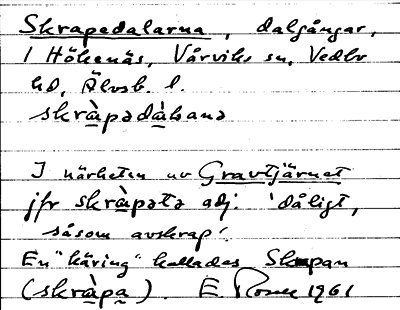 Skrapedalarna, dalgångar,
1 Hökenäs, Vårviks sn, Vedbo
hd, Älvsb. l.
skràpədàɫsanə
I närheten av Gravtjärnet
jfr skràpətə adj. 'dåligt,
såsom avskrap'.
En "käring" kallades Skrapan
(skràpa). E. 1961